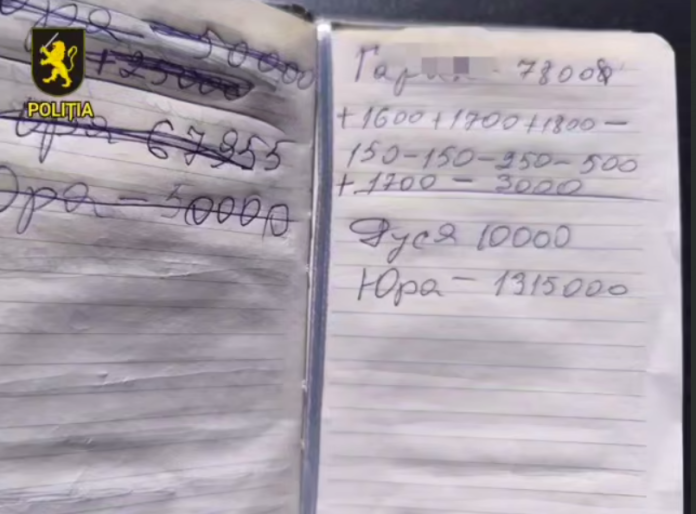 POLIȚIA
50000
+25000
67955
Юра - 50000
Гар - 78000
+1600+1700+1800-
150-150-350-500
+1700 - 3000
Дуся 10000
Юра - 1315000